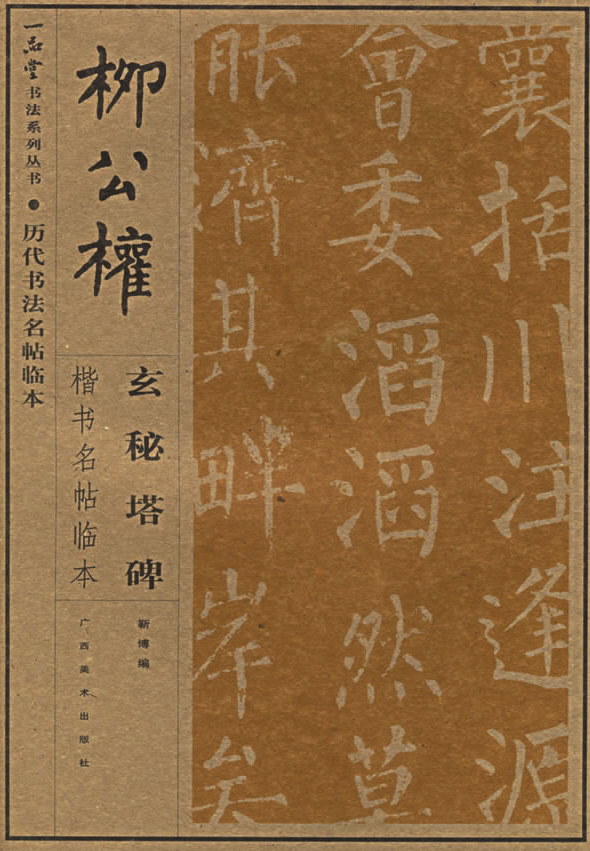 一品堂书法系列丛书●历代书法名帖临本
柳公權
玄秘塔碑
楷书名帖临本
靳博编
广西美术出版社
囊括川注逢源
會委滔滔然莫
能濟其畔岸矣